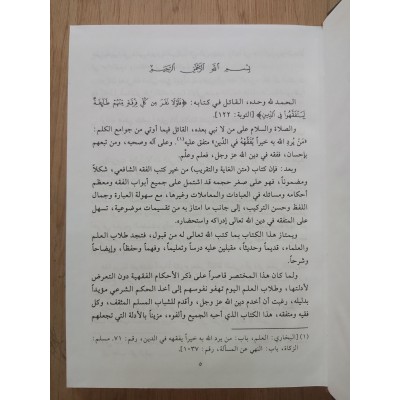 بسم الله الرحمن الرحيم
الحمد لله وحده، القائل في كتابه: ﴿فَلَوْلَا نَفَرَ مِن كُلِّ فِرْقَةٍ مِّنْهُمْ طَائِفَةٌ
لِّيَتَفَقَّهُوا فِي الدِّينِ﴾ [التوبة: ١٢٢].
والصلاة والسلام على من لا نبي بعده، القائل فيما أوتي من جوامع الكلم:
«مَنْ يُرِدِ الله به خيراً يُفَقِّهْهُ في الدِّين» متفق عليه(١)، وعلى آله وصحبه، ومن تبعهم
بإحسان، ففقه في دين الله عز وجل، فعلم وعلَّم.
وبعد: فإن كتاب (متن الغاية والتقريب) من خير كتب الفقه الشافعي، شكلاً
ومضموناً، فهو على صغر حجمه قد اشتمل على جميع أبواب الفقه ومعظم
أحكامه ومسائله في العبادات والمعاملات وغيرها، مع سهولة العبارة وجمال
اللفظ وحسن التركيب، إلى جانب ما امتاز به من تقسيمات موضوعية، تسهل
على المتفقه في دين الله تعالى إدراكه واستحضاره.
ويمتاز هذا الكتاب بما كتب الله تعالى له من قبول، فتجد طلاب العلم
والعلماء، قديماً وحديثاً، مقبلين عليه درساً وتعليماً، وفهماً وحفظاً، وإيضاحاً
وشرحاً.
ولما كان هذا المختصر قاصراً على ذكر الأحكام الفقهية دون التعرض
لأدلتها، وطلاب العلم اليوم تهفو نفوسهم إلى أخذ الحكم الشرعي مؤيداً
بدليله، رغبت أن أخدم دين الله عز وجل، وأقدم للشباب المسلم المثقف، وكل
فقيه ومتفقه، هذا الكتاب الذي أحبه الجميع وألفوه، مزيناً بالأدلة التي تجعلهم
(١) [البخاري: العلم، باب: من يرد الله به خيراً يفقهه في الدين، رقم: ٧١. مسلم:
الزكاة، باب: النهي عن المسألة، رقم: ١٠٣٧].
٥